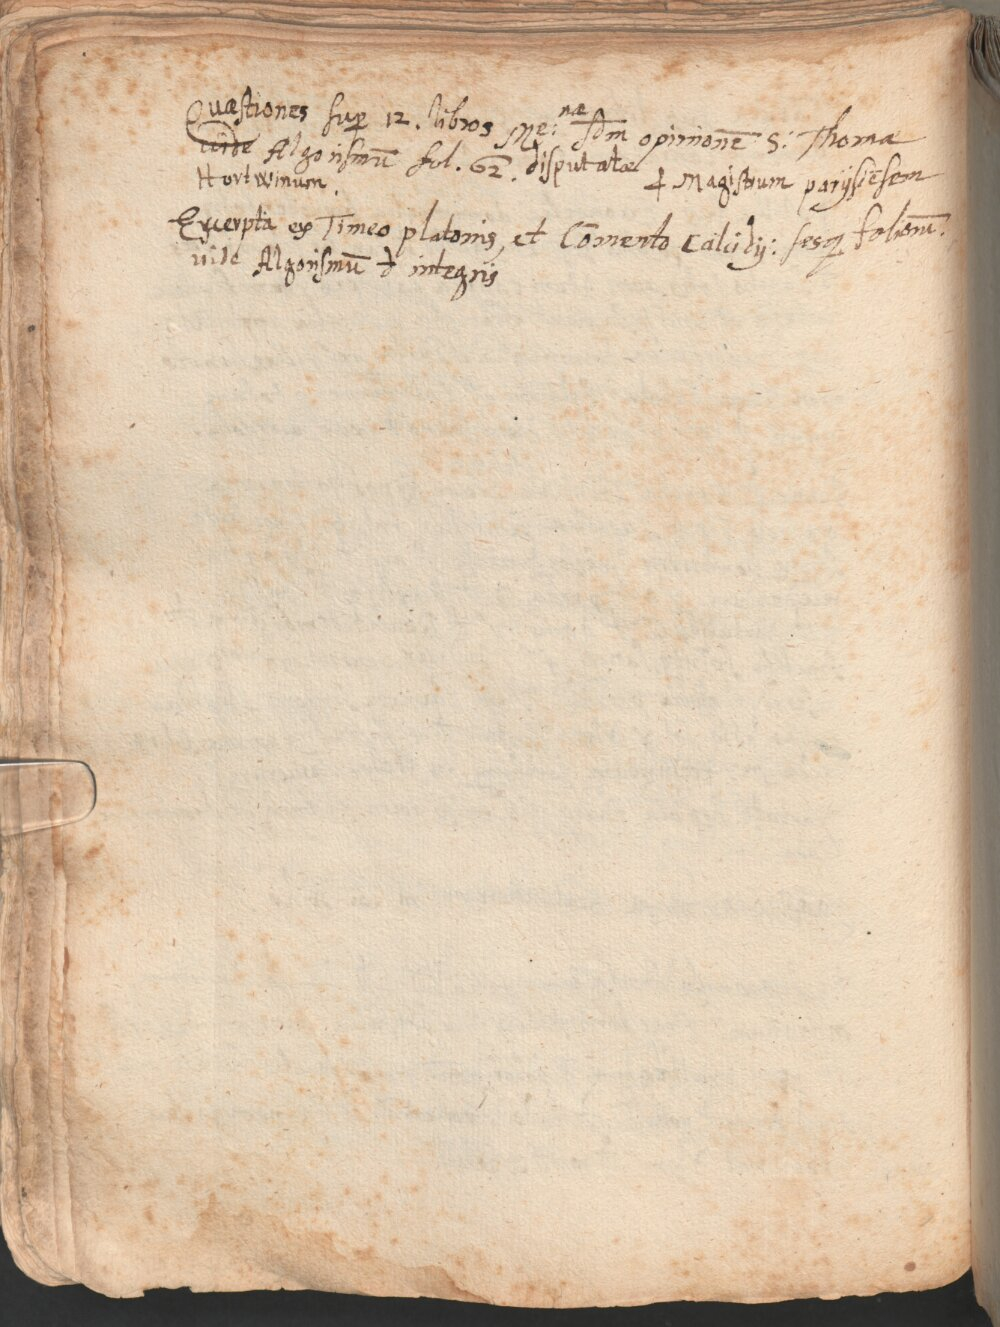 Quæstiones sup 12. libros Me:næ sdm opinionē S: Thomæ
uide Algorismū fol. 62. disputatæ p Magistrum parysiēsem
Hortwinum.
Excerpta ex Timeo platonis, et Cōmento Calcidij: sesq foliorū.
uide Algorismū d integris